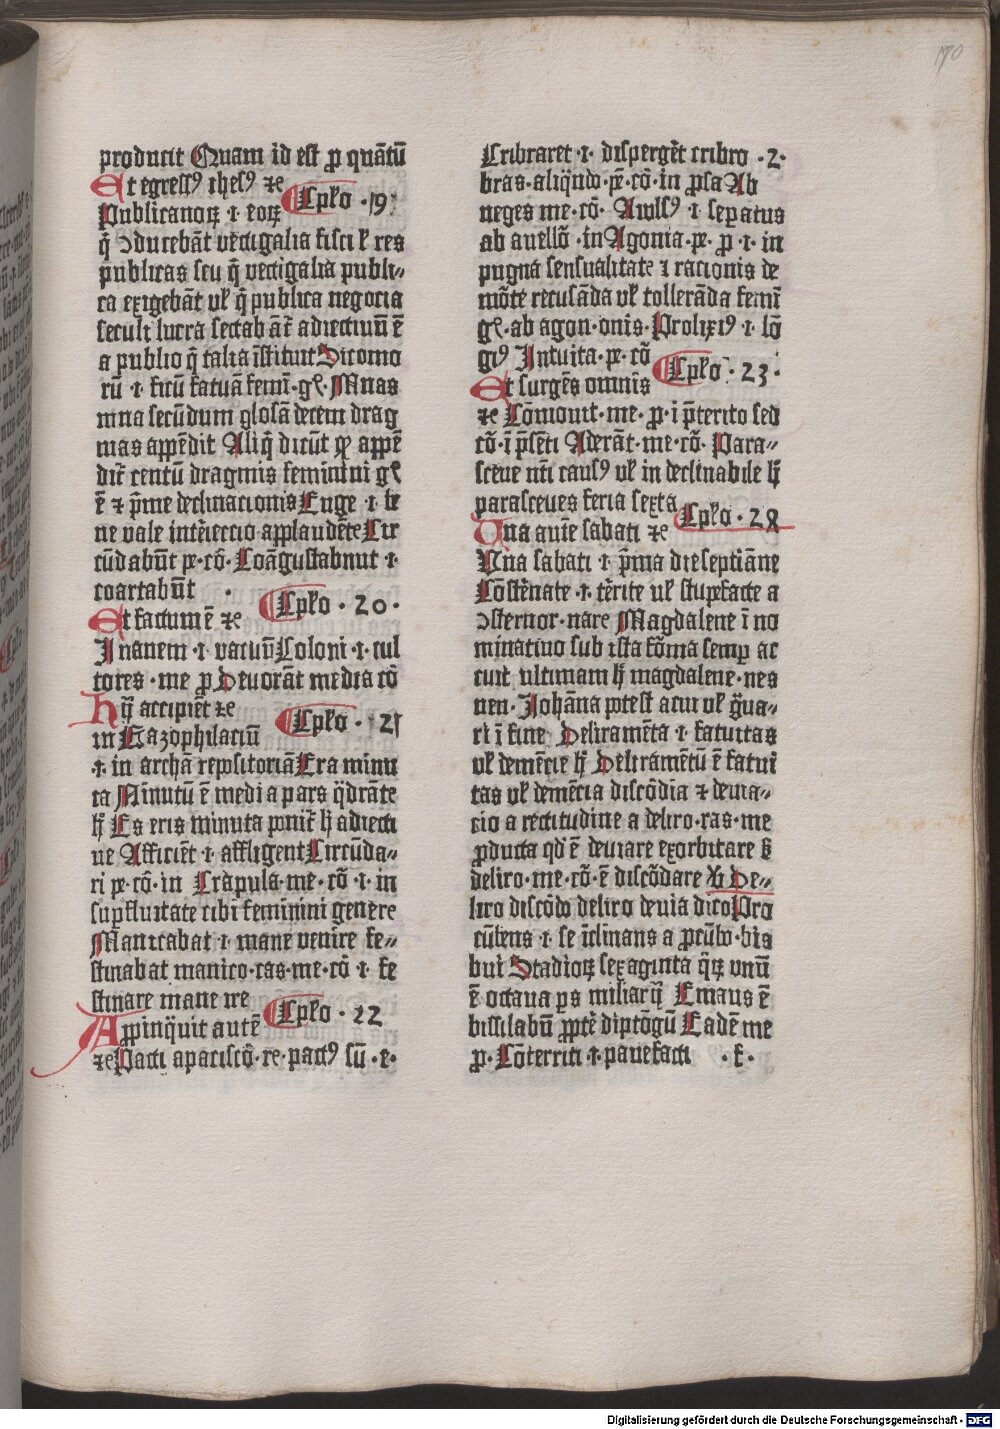 170
producit Quam id est ꝓ quātū
Et egressꝰ ihesꝰ ⁊c̄
Cpło · 19
Publicanoꝝ · i · eoꝝ
q̄ ↄducebāt vectigalia fisci l̵ res
publicas seu q̄ vectigalia publi⸗
ca exigebāt vl̵ q̄ publica negocia
seculi lucra sectabāt adiectiuū ē
a publio q̄ talia īstituit Sicomo
rū · i · ficū fatuā femī · gꝭ Mnas
mna secūdum glosā decem drag
mas appēdit Aliq̄ dicūt ꝙ appē
dit centū dragmis feminini gꝭ
ē ⁊ p̄me declinacionis Euge · i · be
ne vale interieccio applaudētꝭ Cir
cūdabūt pe · cō · Coāgustabnut · i ·
coartabūt
Et factum ē ⁊c̄
Cpło · 20 ·
Inanem · i · vacuū Coloni · i · cul
tores · me ꝓ Deuorāt media cō
Hij accipiēt ⁊c̄
Cpło · 21
in Gazophilaciū
· i · in archā repositoriā Era minu
ta Minutū ē medi a pars q̈drātꝭ
hꝫ Es eris minuta ponit hꝫ adiecti
ue Afficiēt · i · affligent Circūda⸗
ri pe · cō · in Crapula · me · cō · i · in
supfluitate cibi feminini genere
Manicabat · i · mane venire fe⸗
stinabat manico · ras · me · cō · i · fe
stinare mane ire
Cpło · 22
Appinq̈uit autē
⁊c̄ Pacti apaciscō · re · pactꝰ sū · e ·
Cribraret · i · dispergēt cribro · 2 ·
bras · aliq̄ndo · pe · cō · in ꝓsa Ab
neges me · cō · Awlsꝰ · i · sepatus
ab auellō · in Agonia · pe · ꝓ · i · in
pugna sensualitatꝭ ⁊ racionis de
mōte recusāda vl̵ tollerāda femī
gꝭ · ab agon · onis · Prolixiꝰ · i · lō
giꝰ Intuita · pe · cō
Cpło · 23 ·
Et surgēs omnis
⁊c̄ Cōmouit · me · ꝓ · i p̄terito sed
cō · ī p̄sēti Aderāt · me · cō · Para⸗
sceue nt̄i causꝰ vl̵ in declinabile hꝫ
parasceues feria sexta
Cpło · 24
Una autē sabati ⁊c̄
Vna sabati · i · p̄ma die septiāne
Cōstēnate · i · tērite vl̵ stupefacte a
ↄsternor · nare Magdalene ī no
minatiuo sub ista fōma semꝑ ac
cuit vltimam hꝫ magdalene · nes
nen · Johāna potest acui vl̵ g̈ua⸗
ri ī fine Deliramēta · i · fatuitas
vl̵ demēcie hꝫ Deliramētū ē fatui
tas vl̵ demēcia discōdia ⁊ deuia⸗
cio a rectitudine a deliro · ras · me
ꝓducta qd̓ ē deuiare exorbitare sꝫ
deliro · me · cō · ē discōdare Vꝰ De⸗
liro discōdo deliro deuia dico Pro
cūbens · i · se īclinans a ꝓcūbo · bis
bui Stadioꝝ sexaginta q̄ꝝ vnū
ē octaua ps miliarij Emaus ē
bissilabū ꝓptē diptōgū Eadē me
ꝓ · Cōterriti · i · pauefacti · f ·
Digitalisierung gefördert durch die Deutsche Forschungsgemeinschaft - DFG